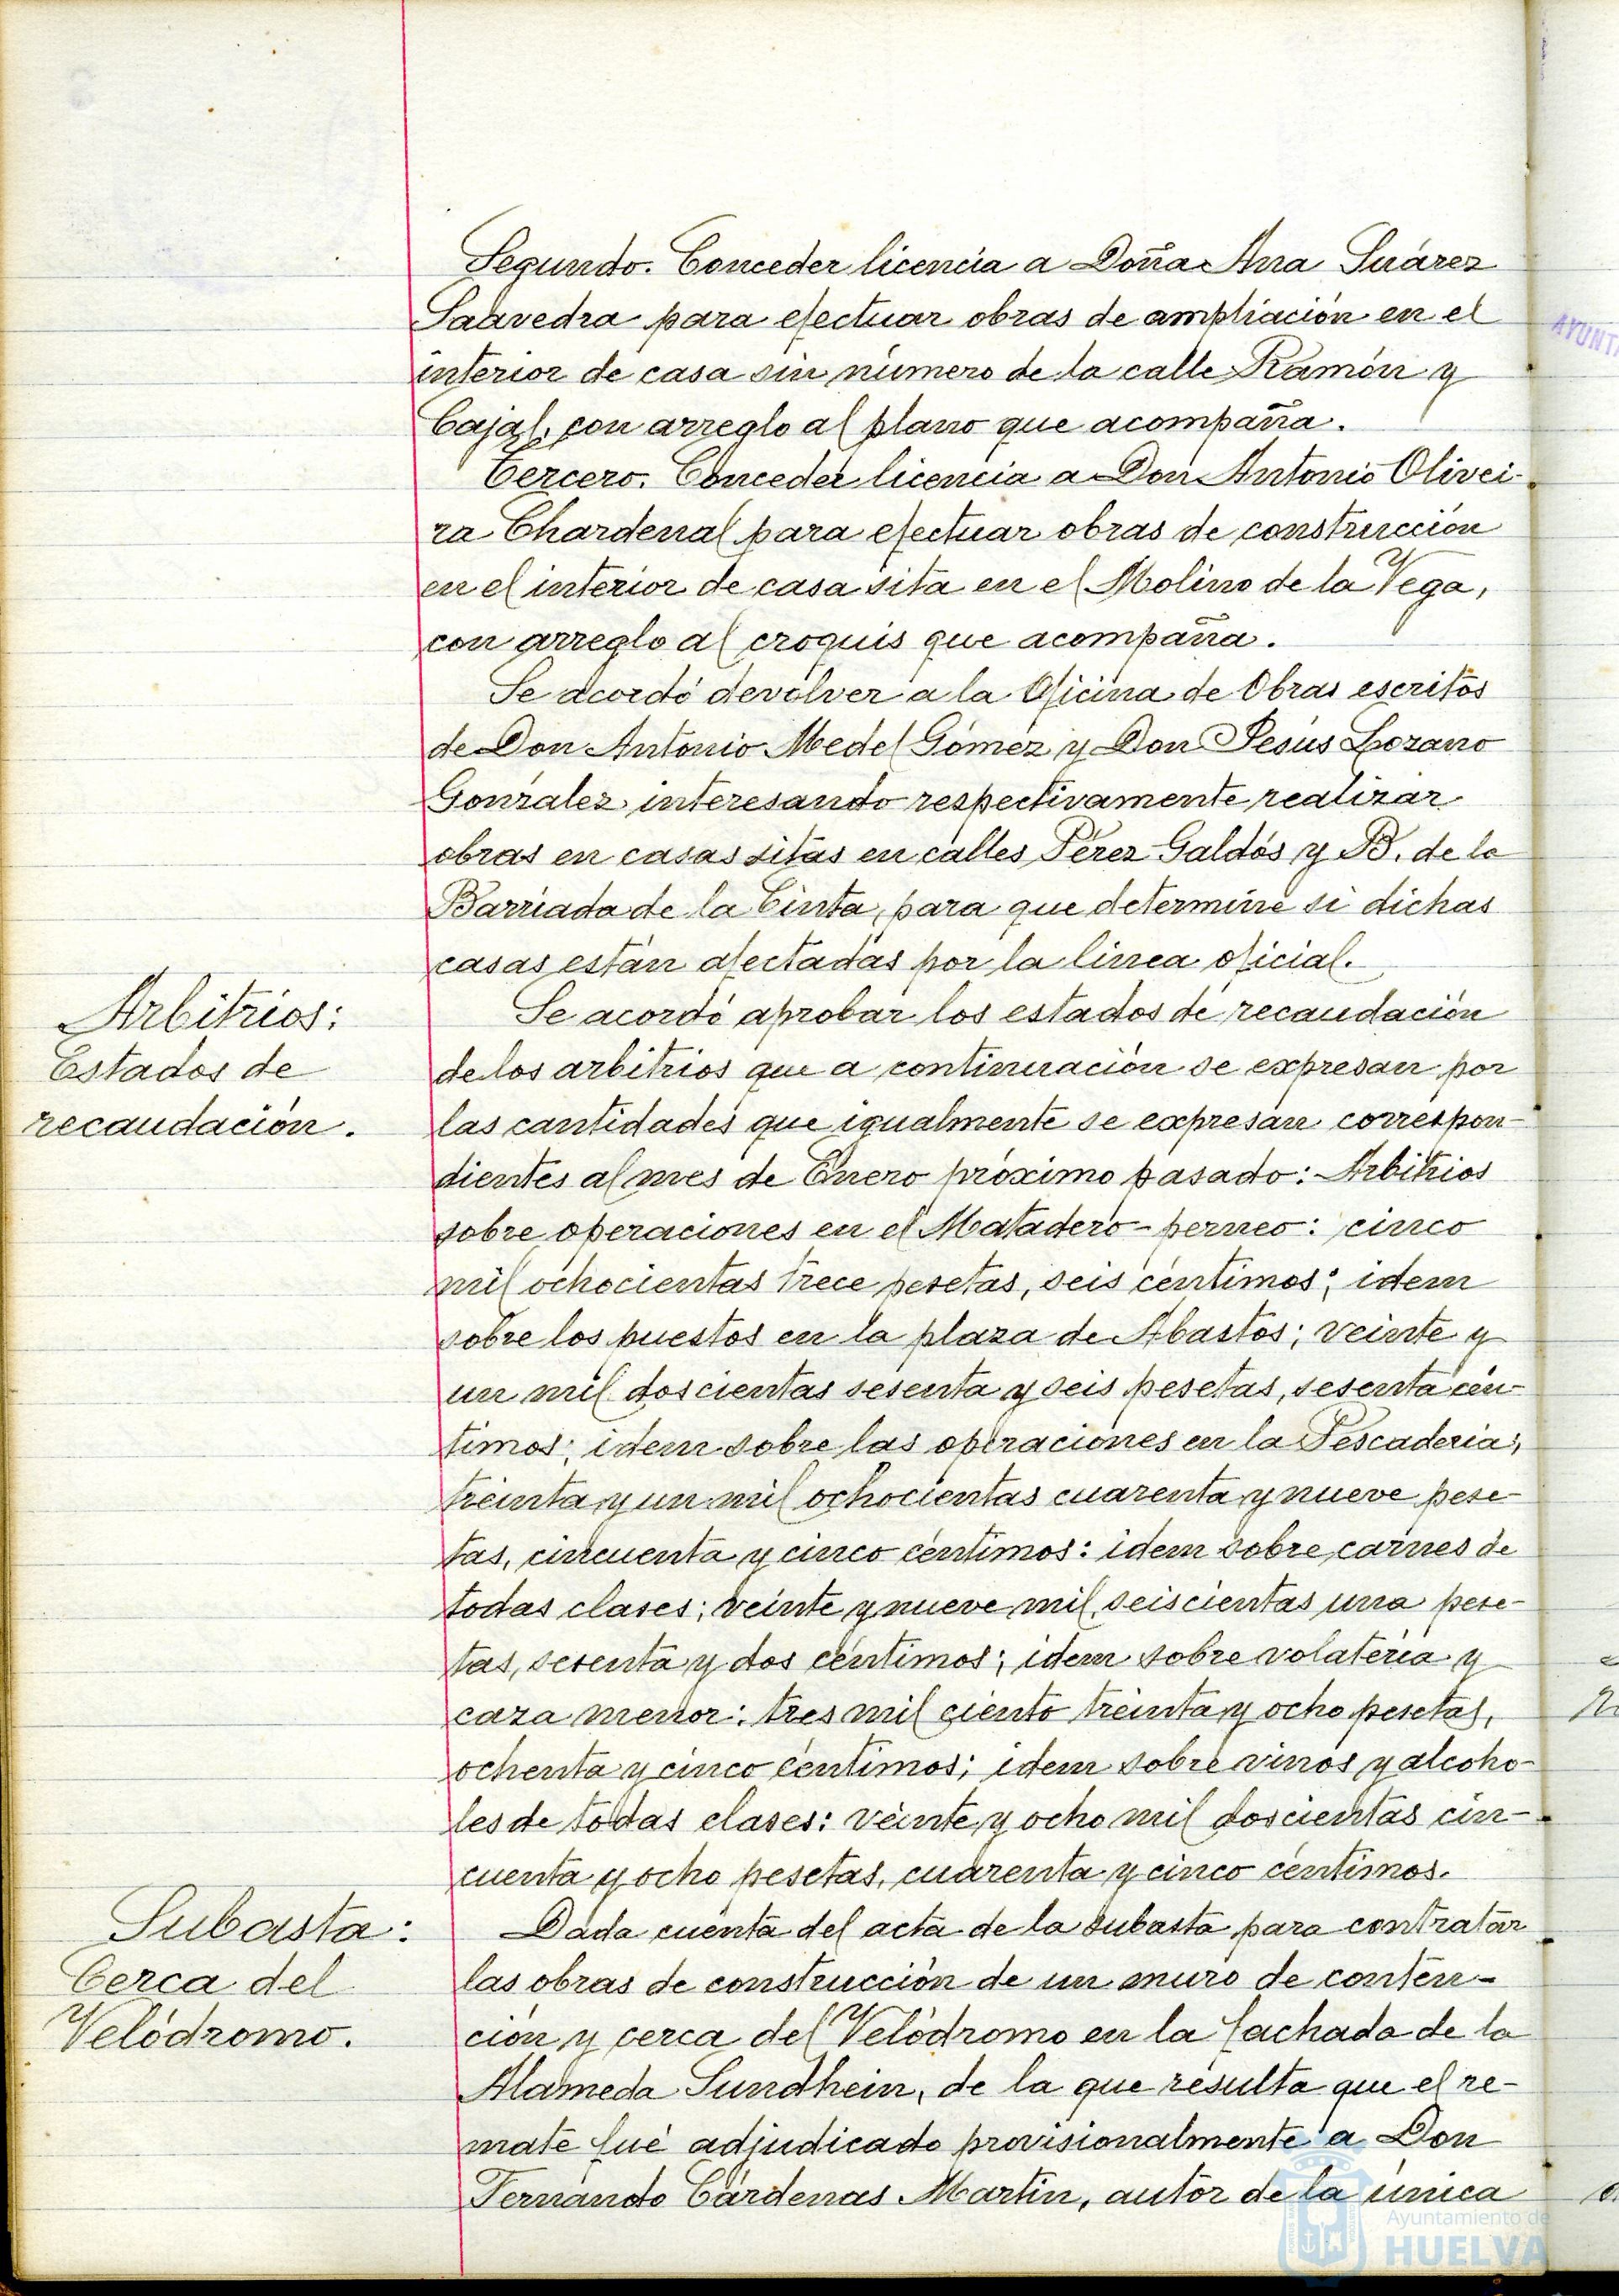 Segundo. Conceder licencia a Doña Ana Suárez
Saavedra para efectuar obras de ampliación en el
interior de casa sin número de la calle Ramón y
Cajal, con arreglo al plano que acompaña.
Tercero. Conceder licencia a Don Antonio Olivei-
ra Chardenal para efectuar obras de construcción
en el interior de casa sita en el Molino de la Vega,
con arreglo al croquis que acompaña.
Se acordó devolver a la Oficina de Obras escritos
de Don Antonio Medel Gómez y Don Jesús Lozano
González interesando respectivamente realizar
obras en casas sitas en calles Pérez Galdós y B. de la
Barriada de la Cinta, para que determine si dichas
casas están afectadas por la línea oficial.
Arbitrios:
Estados de
recaudación.
Se acordó aprobar los estados de recaudación
de los arbitrios que a continuación se expresan por
las cantidades que igualmente se expresan correspon-
dientes al mes de Enero próximo pasado: Arbitrios
sobre operaciones en el Matadero-perneo: cinco
mil ochocientas trece pesetas, seis céntimos; idem
sobre los puestos en la plaza de Abastos; veinte y
un mil doscientas sesenta y seis pesetas, sesenta cén-
timos; idem sobre las operaciones en la Pescadería;
treinta y un mil ochocientas cuarenta y nueve pese-
tas, cincuenta y cinco céntimos: idem sobre carnes de
todas clases; veinte y nueve mil seiscientas una pese-
tas, y dos céntimos; idem sobre volatería y
caza menor: tres mil ciento treinta y ocho pesetas,
ochenta y cinco céntimos; idem sobre vinos y alcoho-
les de todas clases: veinte y ocho mil doscientas cin-
cuenta y ocho pesetas, cuarenta y cinco céntimos.
Subasta:
Cerca del
Velódromo.
Dada cuenta del acta de la subasta para contratar
las obras de construcción de un muro de conten-
ción y cerca del Velódromo en la fachada de la
Alameda Sundhein, de la que resulta que el re-
mate fué adjudicado provisionalmente a Don
Fernando Cárdenas Martín, autor de la única
AYUNT
Ayuntamiento de
HUELVA